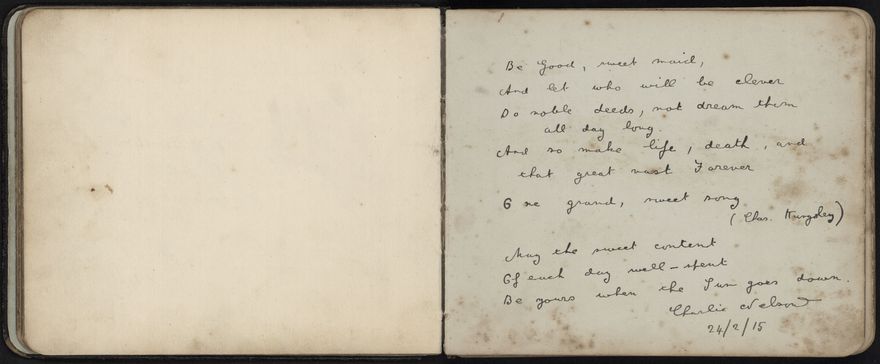 Be Good, sweet maid,
And let who will be clever
Do noble deeds, not dream them
all day long.
And so make life, death, and
that great vast Forever
One grand, sweet song
(Chas. Kingsley)
May the sweet content
Of each day well-spent
Be yours when the Sun goes down.
Charlie Nelson
24/2/15